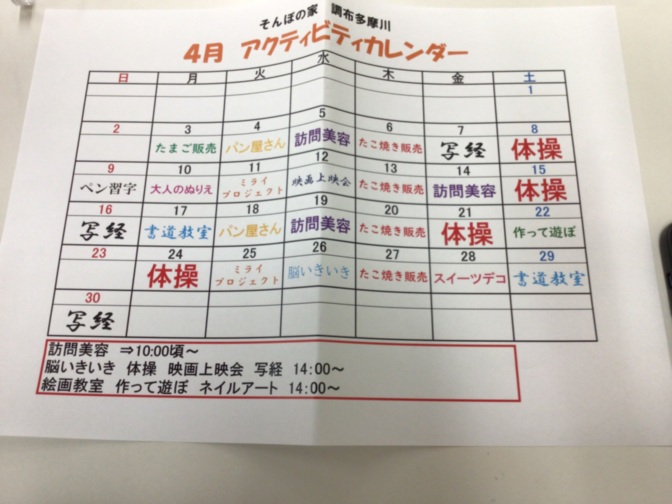 そんぽの家 調布多摩川
4月 アクティビティカレンダー
日 月 火 水 木 金 土
1
2 3 4 5 6 7 8
たまご販売 パン屋さん 訪問美容 たこ焼き販売 写経 体操
9 10 11 12 13 14 15
ペン習字 大人のぬりえ ミライプロジェクト 映画上映会 たこ焼き販売 訪問美容 体操
16 17 18 19 20 21 22
写経 書道教室 パン屋さん 訪問美容 たこ焼き販売 体操 作って遊ぼ
23 24 25 26 27 28 29
体操 ミライプロジェクト 脳いきいき たこ焼き販売 スイーツデコ 書道教室
30
写経
訪問美容 ⇒10:00頃~
脳いきいき 体操 映画上映会 写経 14:00~
絵画教室 作って遊ぼ ネイルアート 14:00~